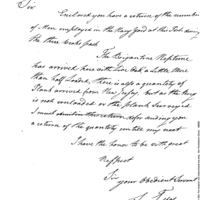 Sir
Enclosed you have a return of the number
of Men employed in the Navy Yard at this Port during
the three weeks past
The Brigantine Neptune
has arrived here with Live Oak a little More
than half Loaded, there is also a quantity of
Plank arrived from New Jersey, but as the Brig
is not unloaded or the plank Surveyed
I must omit in this return defer sending you
a return of the quantity until my next
I have the honor to be with great
Respect
Sir
your Obedient Servant